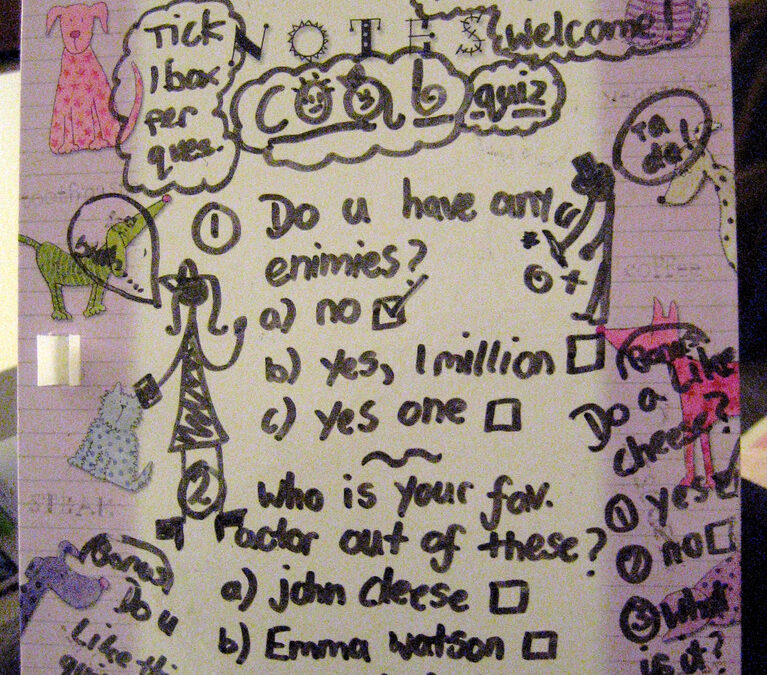 Tick
1 box
per
ques.
NOTES
welcome!
cool quiz
ta
da!
① Do u have any
enimies?
a) no
b) yes, 1 million
c) yes one
② Who is your fav.
actor out of these?
a) john cleese
b) Emma watson
Bonus
Do u
Like
Do u Like
cheese?
① yes
② no
③ What
is it?